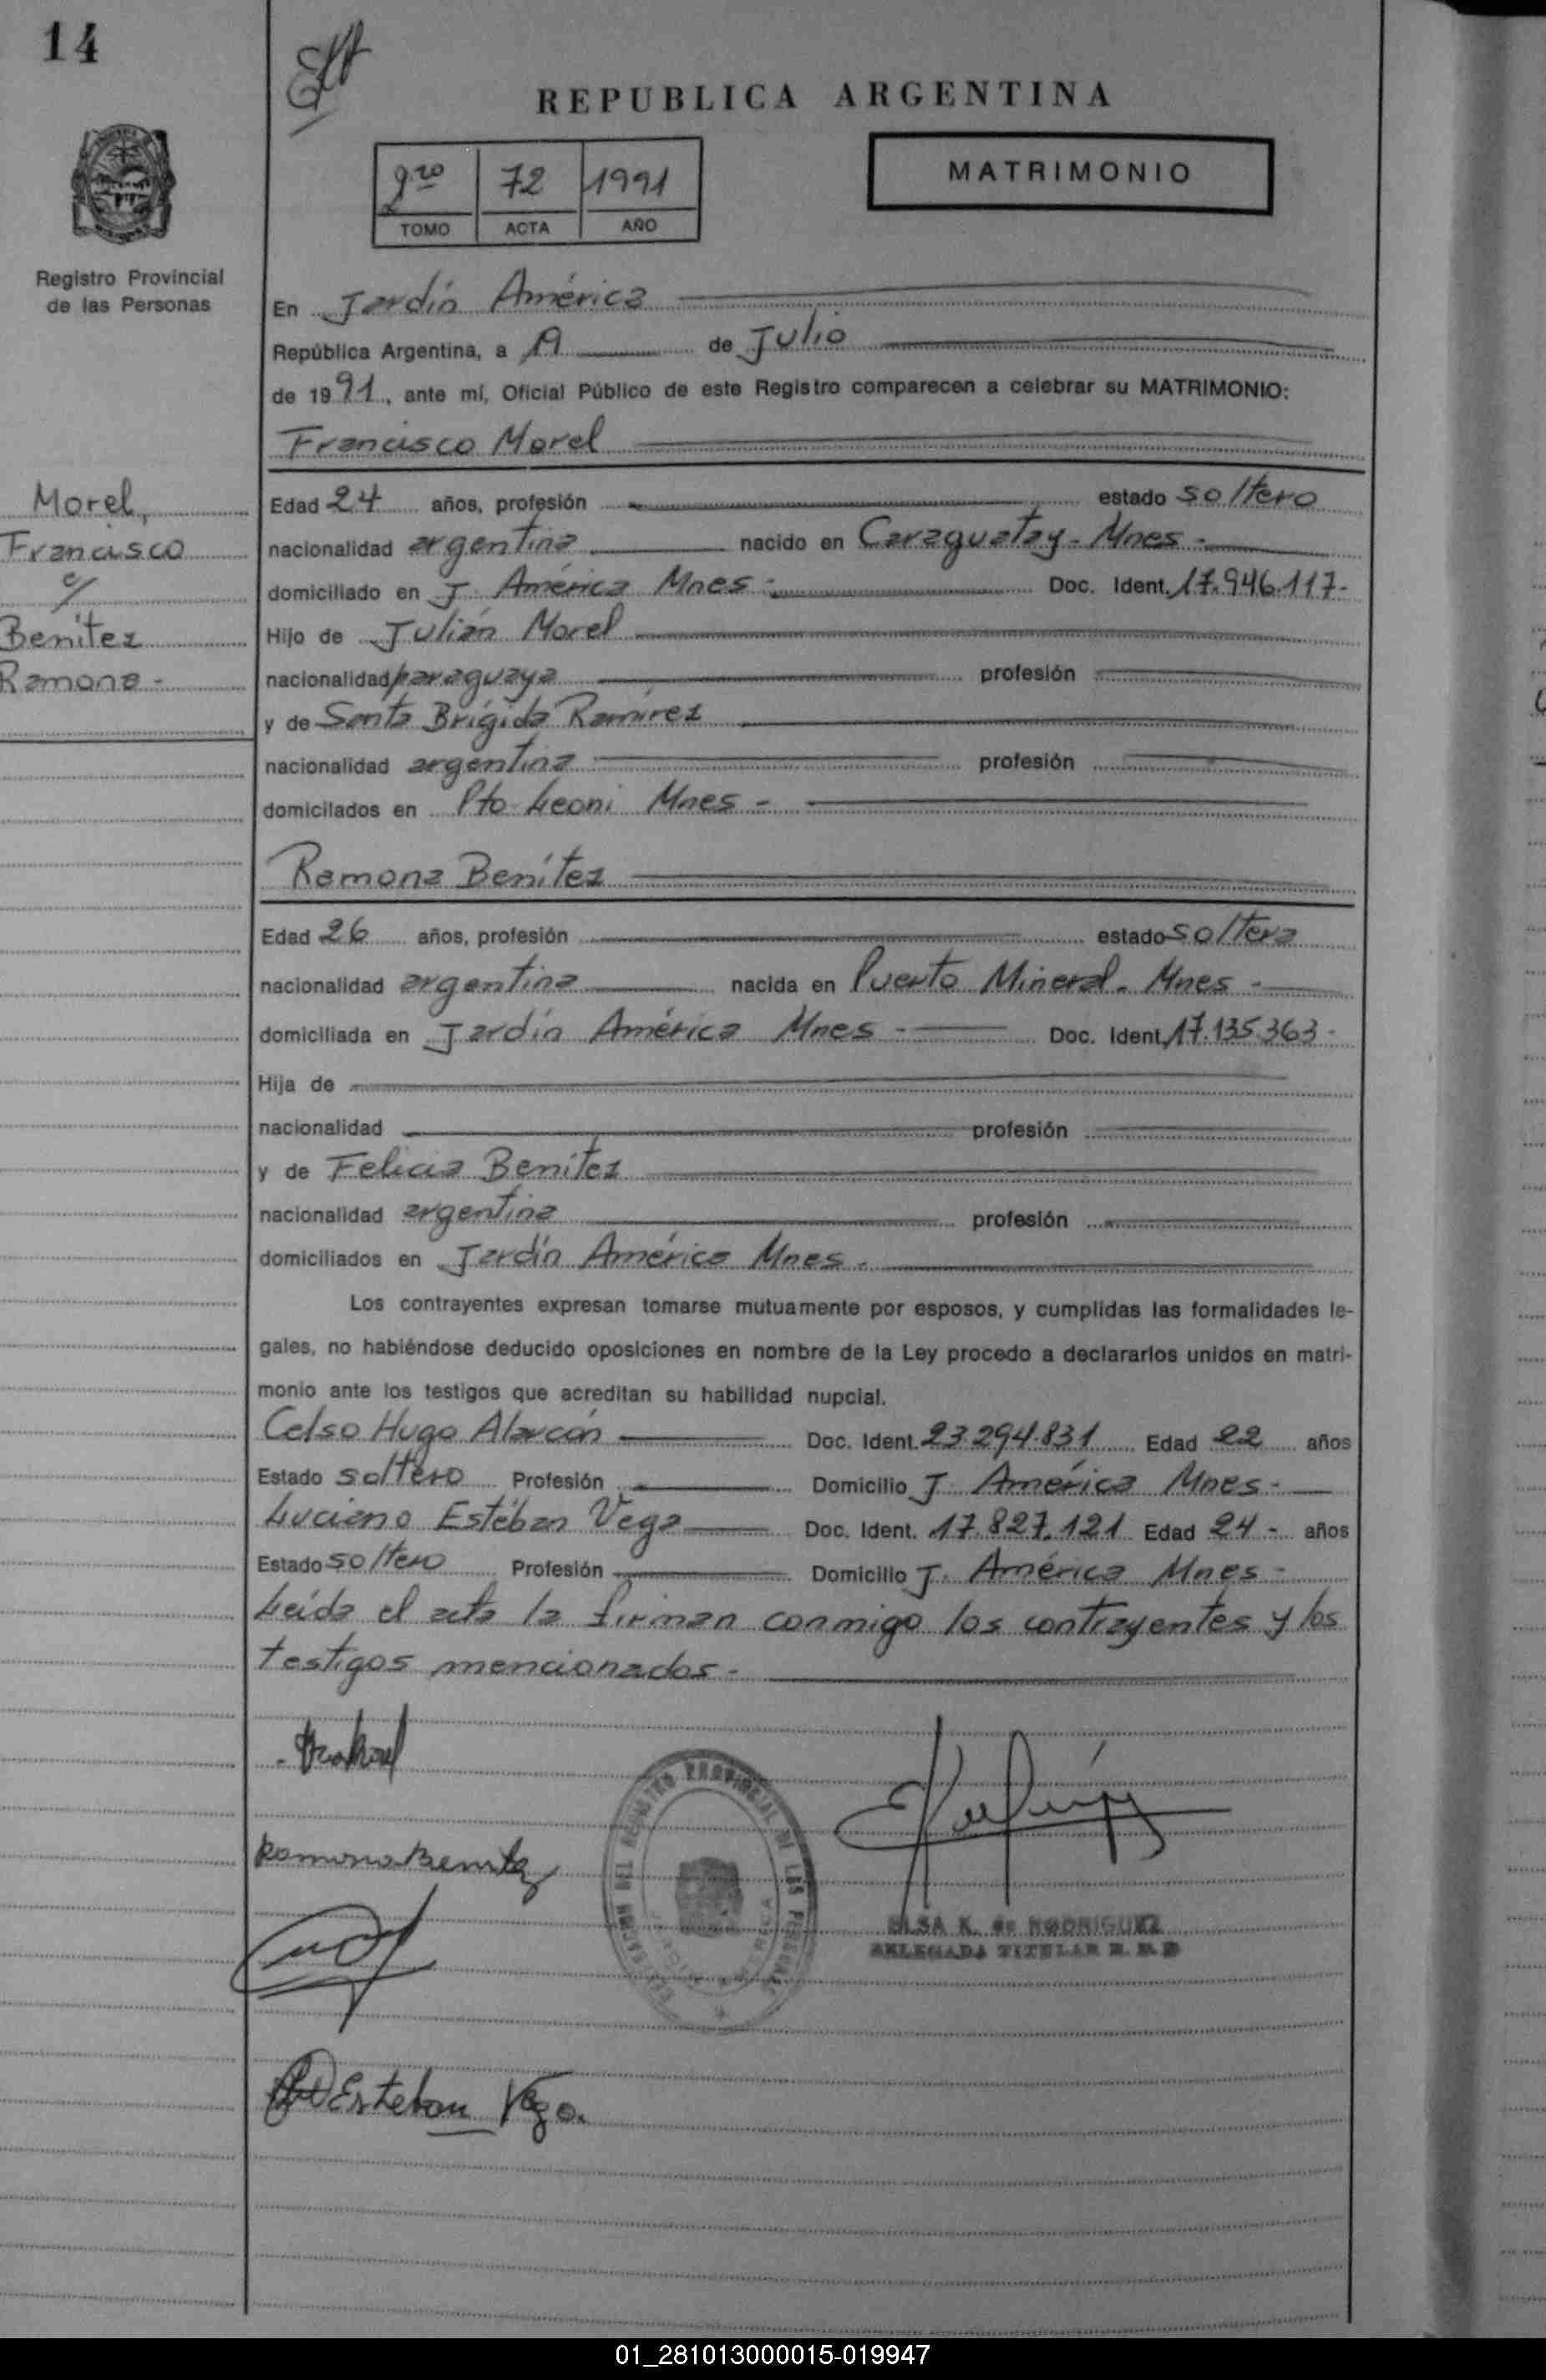 14
REPUBLICA ARGENTINA
2do 72 1991
TOMO ACTA AÑO
MATRIMONIO
Registro Provincial
de las Personas
En Jardín América
República Argentina, a 19 de Julio
de 1991, ante mí, Oficial Público de este Registro comparecen a celebrar su MATRIMONIO:
Francisco Morel
Morel,
Francisco
c/
Benítez
Ramona -
Edad 24 años, profesión estado soltero
nacionalidad argentina nacido en Caraguatay - Mnes -
domiciliado en J. América Mnes - Doc. Ident. 17.946.117-
Hijo de Julián Morel
nacionalidad paraguaya profesión
y de Santa Brígida Ramírez
nacionalidad argentina profesión
domicilados en Pto Leoni Mnes -
Ramona Benítez
Edad 26 años, profesión estado soltera
nacionalidad argentina nacida en Puerto Mineral - Mnes -
domiciliada en Jardín América Mnes - Doc. Ident. 17.135.363-
Hija de
nacionalidad profesión
y de Felicia Benítez
nacionalidad argentina profesión
domiciliados en Jardín América Mnes -
Los contrayentes expresan tomarse mutuamente por esposos, y cumplidas las formalidades le-
gales, no habiéndose deducido oposiciones en nombre de la Ley procedo a declararlos unidos en matri-
monio ante los testigos que acreditan su habilidad nupcial.
Celso Hugo Alarcón Doc. Ident. 23.294.831 Edad 22 años
Estado soltero Profesión Domicilio J. América Mnes -
Luciano Estéban Vega Doc. Ident. 17.827.121 Edad 24 - años
Estado soltero Profesión Domicilio J. América Mnes -
Leída el acta la firman conmigo los contrayentes y los
testigos mencionados -
Ramona Benitez
ELSA K. de RODRIGUEZ
DELEGADA TITULAR
Esteban Vega.
01_281013000015-019947